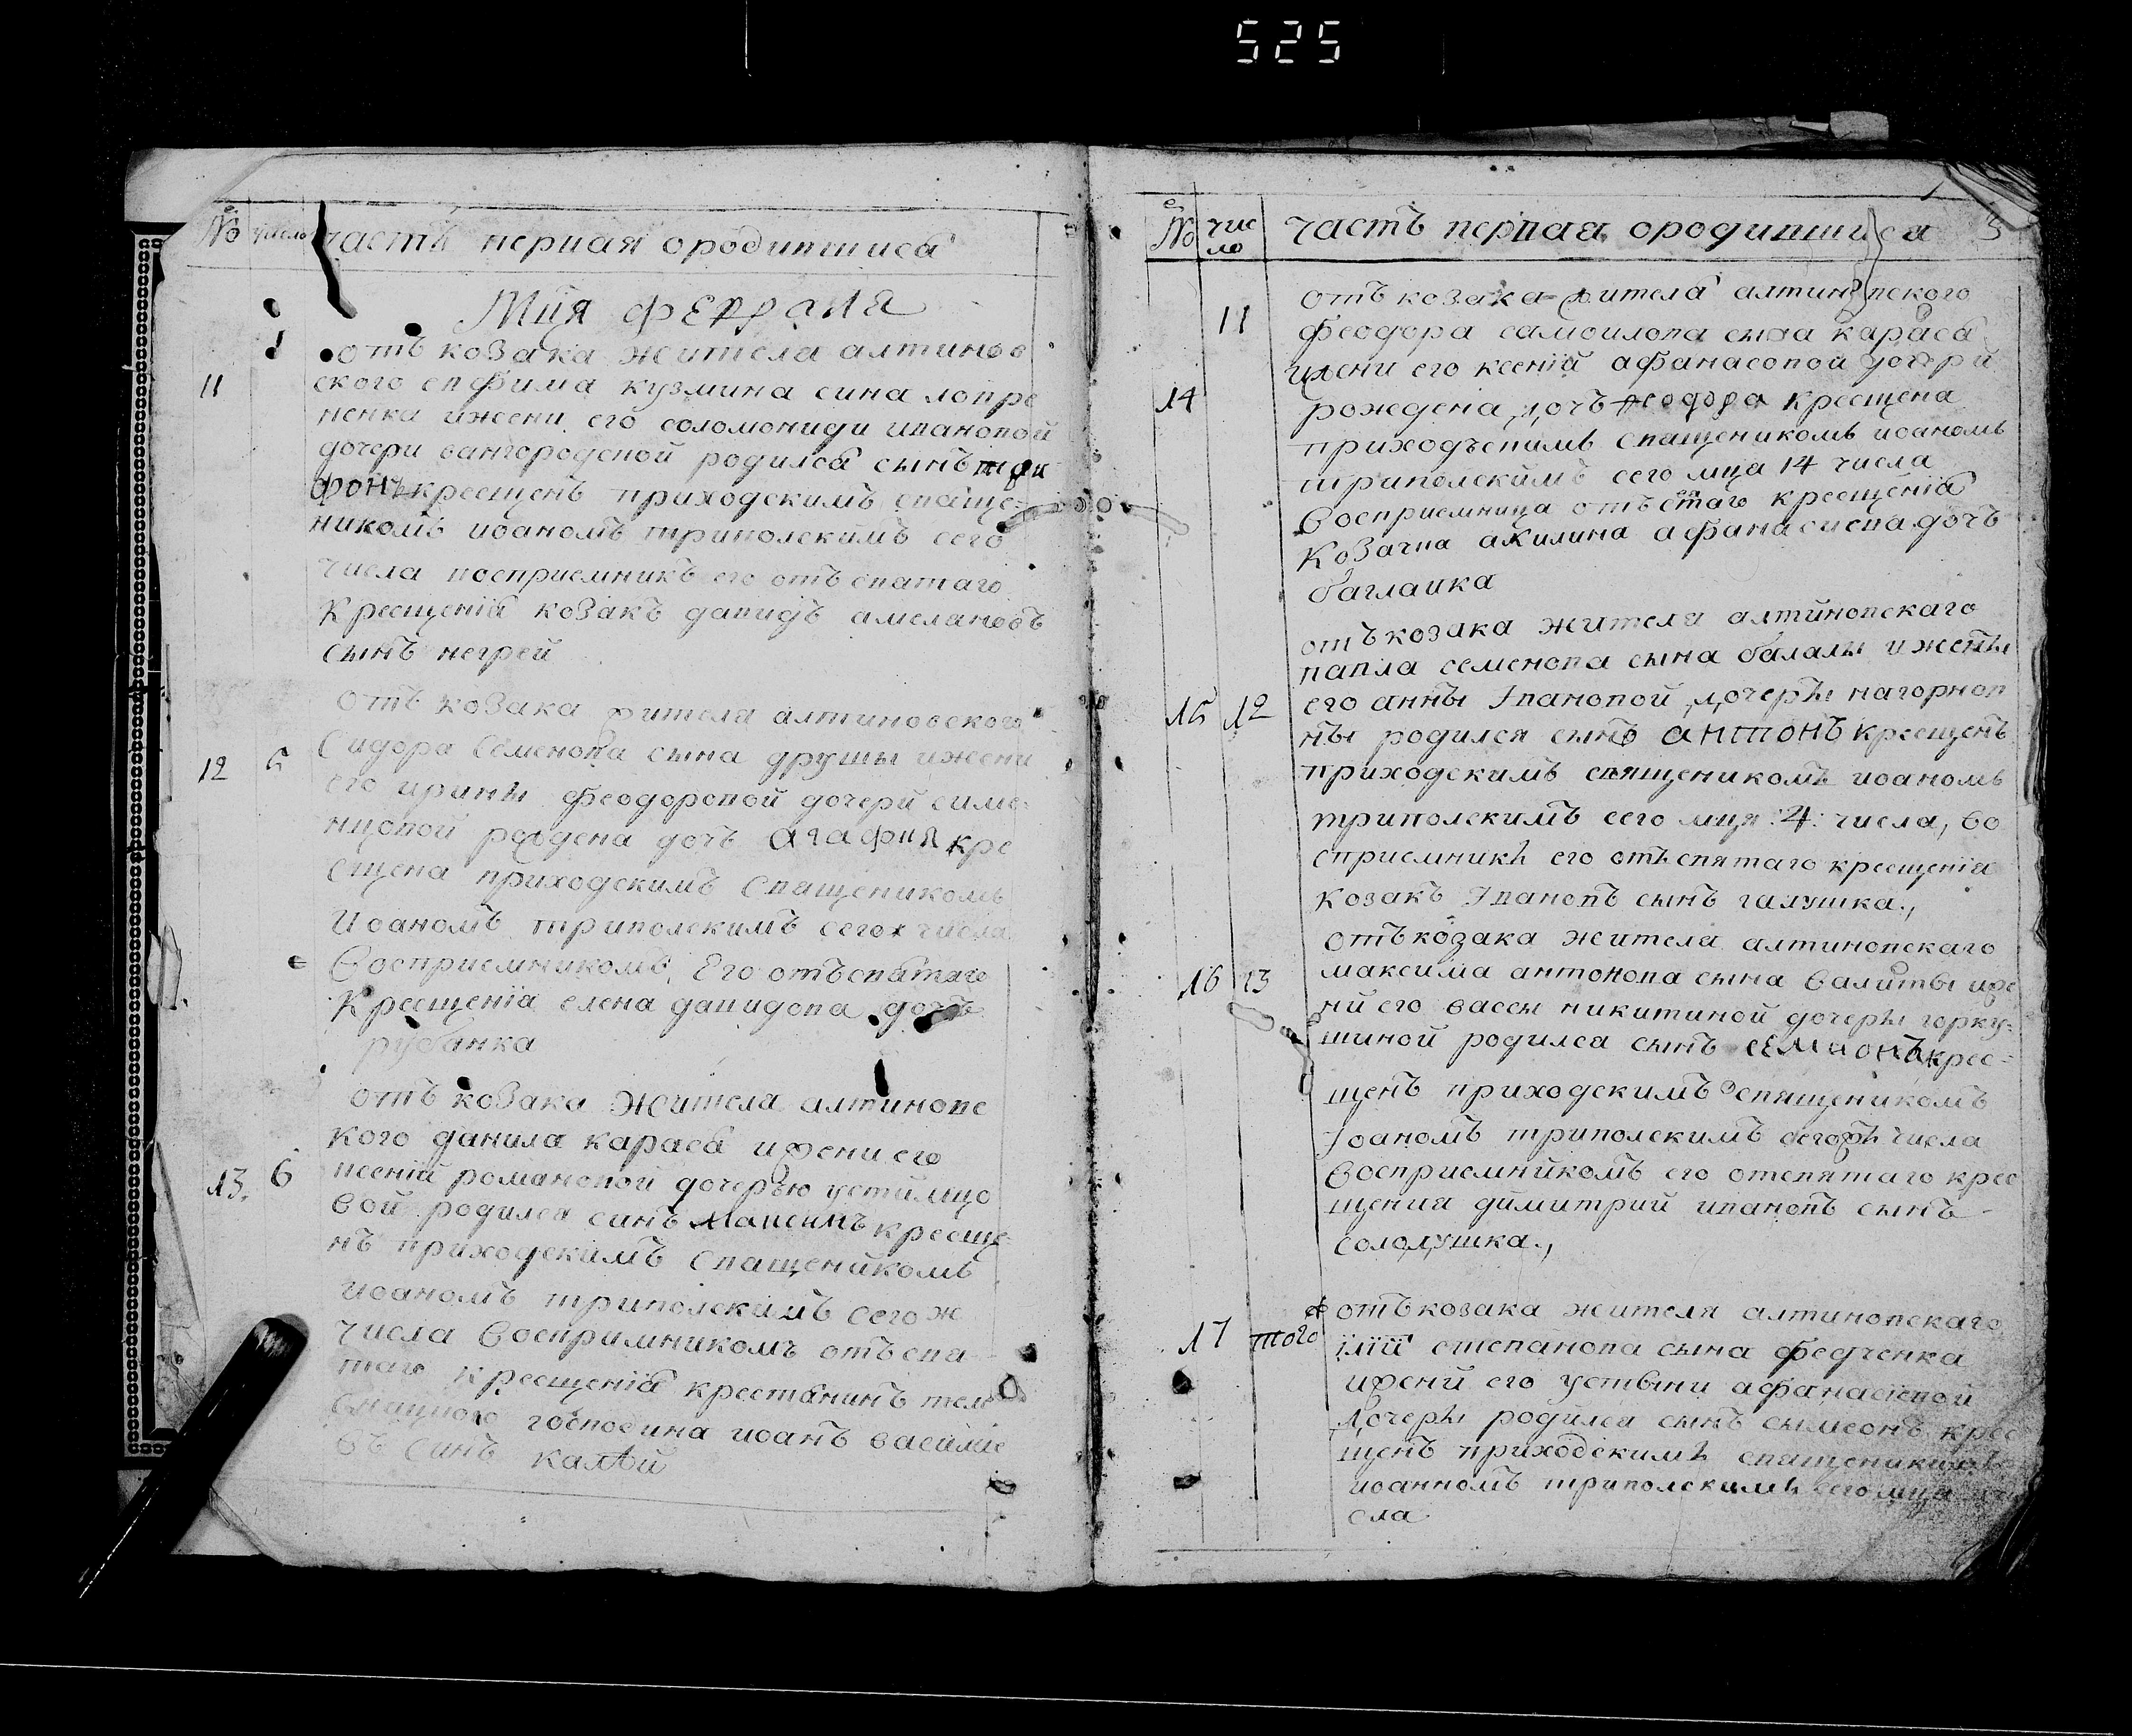 525
№ число часть первая ородившися
Мця февраля
1
отъ козака жителя алтинов
11
ского евфима кузмина сина лопре
ненка ижени его соломониди ивановой
дочери вангородской родился сынъ
фонъ крещенъ приходскимъ свяще-
никомъ иоаномъ триполскимъ сего
числа восприемникъ его отъ святаго
крещенія козакъ давидъ амеляновъ
сынъ негрей
отъ козака жителя алтиновского
Сидора Семенова сына друшы ижени
12 5
его ирины феодоровой дочерй симо-
нцовой рождена дочь агафия кре
щена приходскимъ священикомъ
Иоаномъ триполскимъ сегож числа
Восприемникомъ Его отъ святаго
Крещенія елена давидова дочь
рубанка
отъ козака жителя алтиновс
кого данила карася ижени его
13. 6
ксеній романовой дочерью устимцо
вой родился синъ максимъ креще
нъ приходскимъ священйкомъ
иоаномъ триполскимъ сегож
числа Воспримникомъ отъ свя-
таго Крещенія крестянинъ
господина иоанъ василие
въ синъ
№ чис
ло
часть первая ородившися 3
отъ козака жителя алтиновского
11
феодора самоилова сына карася
ижени его ксеній афанасовой дочерй
14
рождена дочъ феодора крещена
приходъскимъ священикомъ иоаномъ
триполскимъ сего мца 14 числа
Восприемница отъ стаго крещенія
козачка акилина афанасиева дочъ
баглаика
отъ козака жителя алтйновскаго
павла семенова сына балалы и жены
15 12
его анны Івановой дочеры нагорнов
ны родился сынъ антонъ крещенъ
приходскимъ священикомъ иоаномъ
триполскимъ сего мця 14 числа, во
сприемникъ его отъ святаго крещенія
козакъ Івановъ сынъ галушка.,
отъ козака жителя алтиновскаго
16 13
максима антонова сына валиты иже
нй его васси никитиной дочеры горку-
шиной родился сынъ семионъ крес-
щенъ приходскимъ священикомъ
Іоаномъ триполскимъ сегожъ числа
Восприемнйкомъ его отсвятаго крес
щения димитрий ивановъ сынъ
солодушка.,
отъ козака жителя алтиновскаго
17 того ж
іліи степанова сына федченка
иженй его устыни афанасіевой
дочеры родился сынъ сымеонъ крес
щенъ приходскимъ священикомъ
иоанномъ триполскимъ сего мца чи
сла